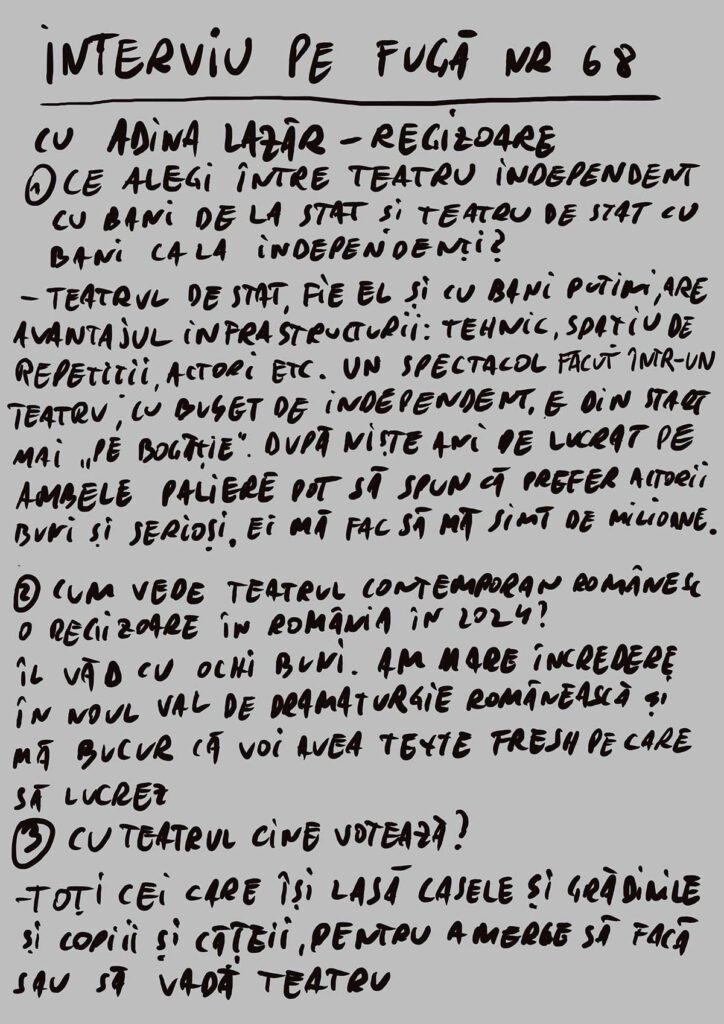 INTERVIU PE FUGĂ NR 68
CU ADINA LAZĂR – REGIZOARE
① CE ALEGI ÎNTRE TEATRU INDEPENDENT
CU BANI DE LA STAT ȘI TEATRU DE STAT CU
BANI CA LA INDEPENDENȚI?
– TEATRUL DE STAT, FIE EL ȘI CU BANI PUȚINI, ARE
AVANTAJUL INFRASTRUCTURII: TEHNIC, SPAȚIU DE
REPETIȚII, ACTORI ETC. UN SPECTACOL FĂCUT ÎNTR-UN
TEATRU, CU BUGET DE INDEPENDENT, E DIN START
MAI „PE BOGĂȚIE". DUPĂ NIȘTE ANI DE LUCRAT PE
AMBELE PALIERE POT SĂ SPUN CĂ PREFER ACTORII
BUNI ȘI SERIOȘI. EI MĂ FAC SĂ MĂ SIMT DE MILIOANE.
② CUM VEDE TEATRUL CONTEMPORAN ROMÂNESC
O REGIZOARE ÎN ROMÂNIA ÎN 2024?
ÎL VĂD CU OCHI BUNI. AM MARE ÎNCREDERE
ÎN NOUL VAL DE DRAMATURGIE ROMÂNEASCĂ ȘI
MĂ BUCUR CĂ VOI AVEA TEXTE FRESH PE CARE
SĂ LUCREZ
③ CU TEATRUL CINE VOTEAZĂ?
– TOȚI CEI CARE ÎȘI LASĂ CASELE ȘI GRĂDINILE
ȘI COPIII ȘI CĂȚEII, PENTRU A MERGE SĂ FACĂ
SAU SĂ VADĂ TEATRU